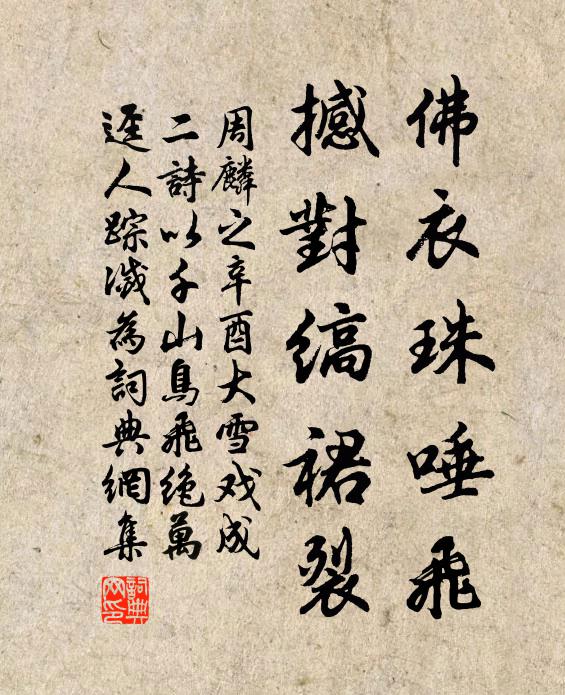 佛衣珠唾飛
撼對縞裙裂
周麟之辛酉大雪戏成
二詩以千山鳥飛絶萬
逕人踪滅為詞典網集
詞典网印